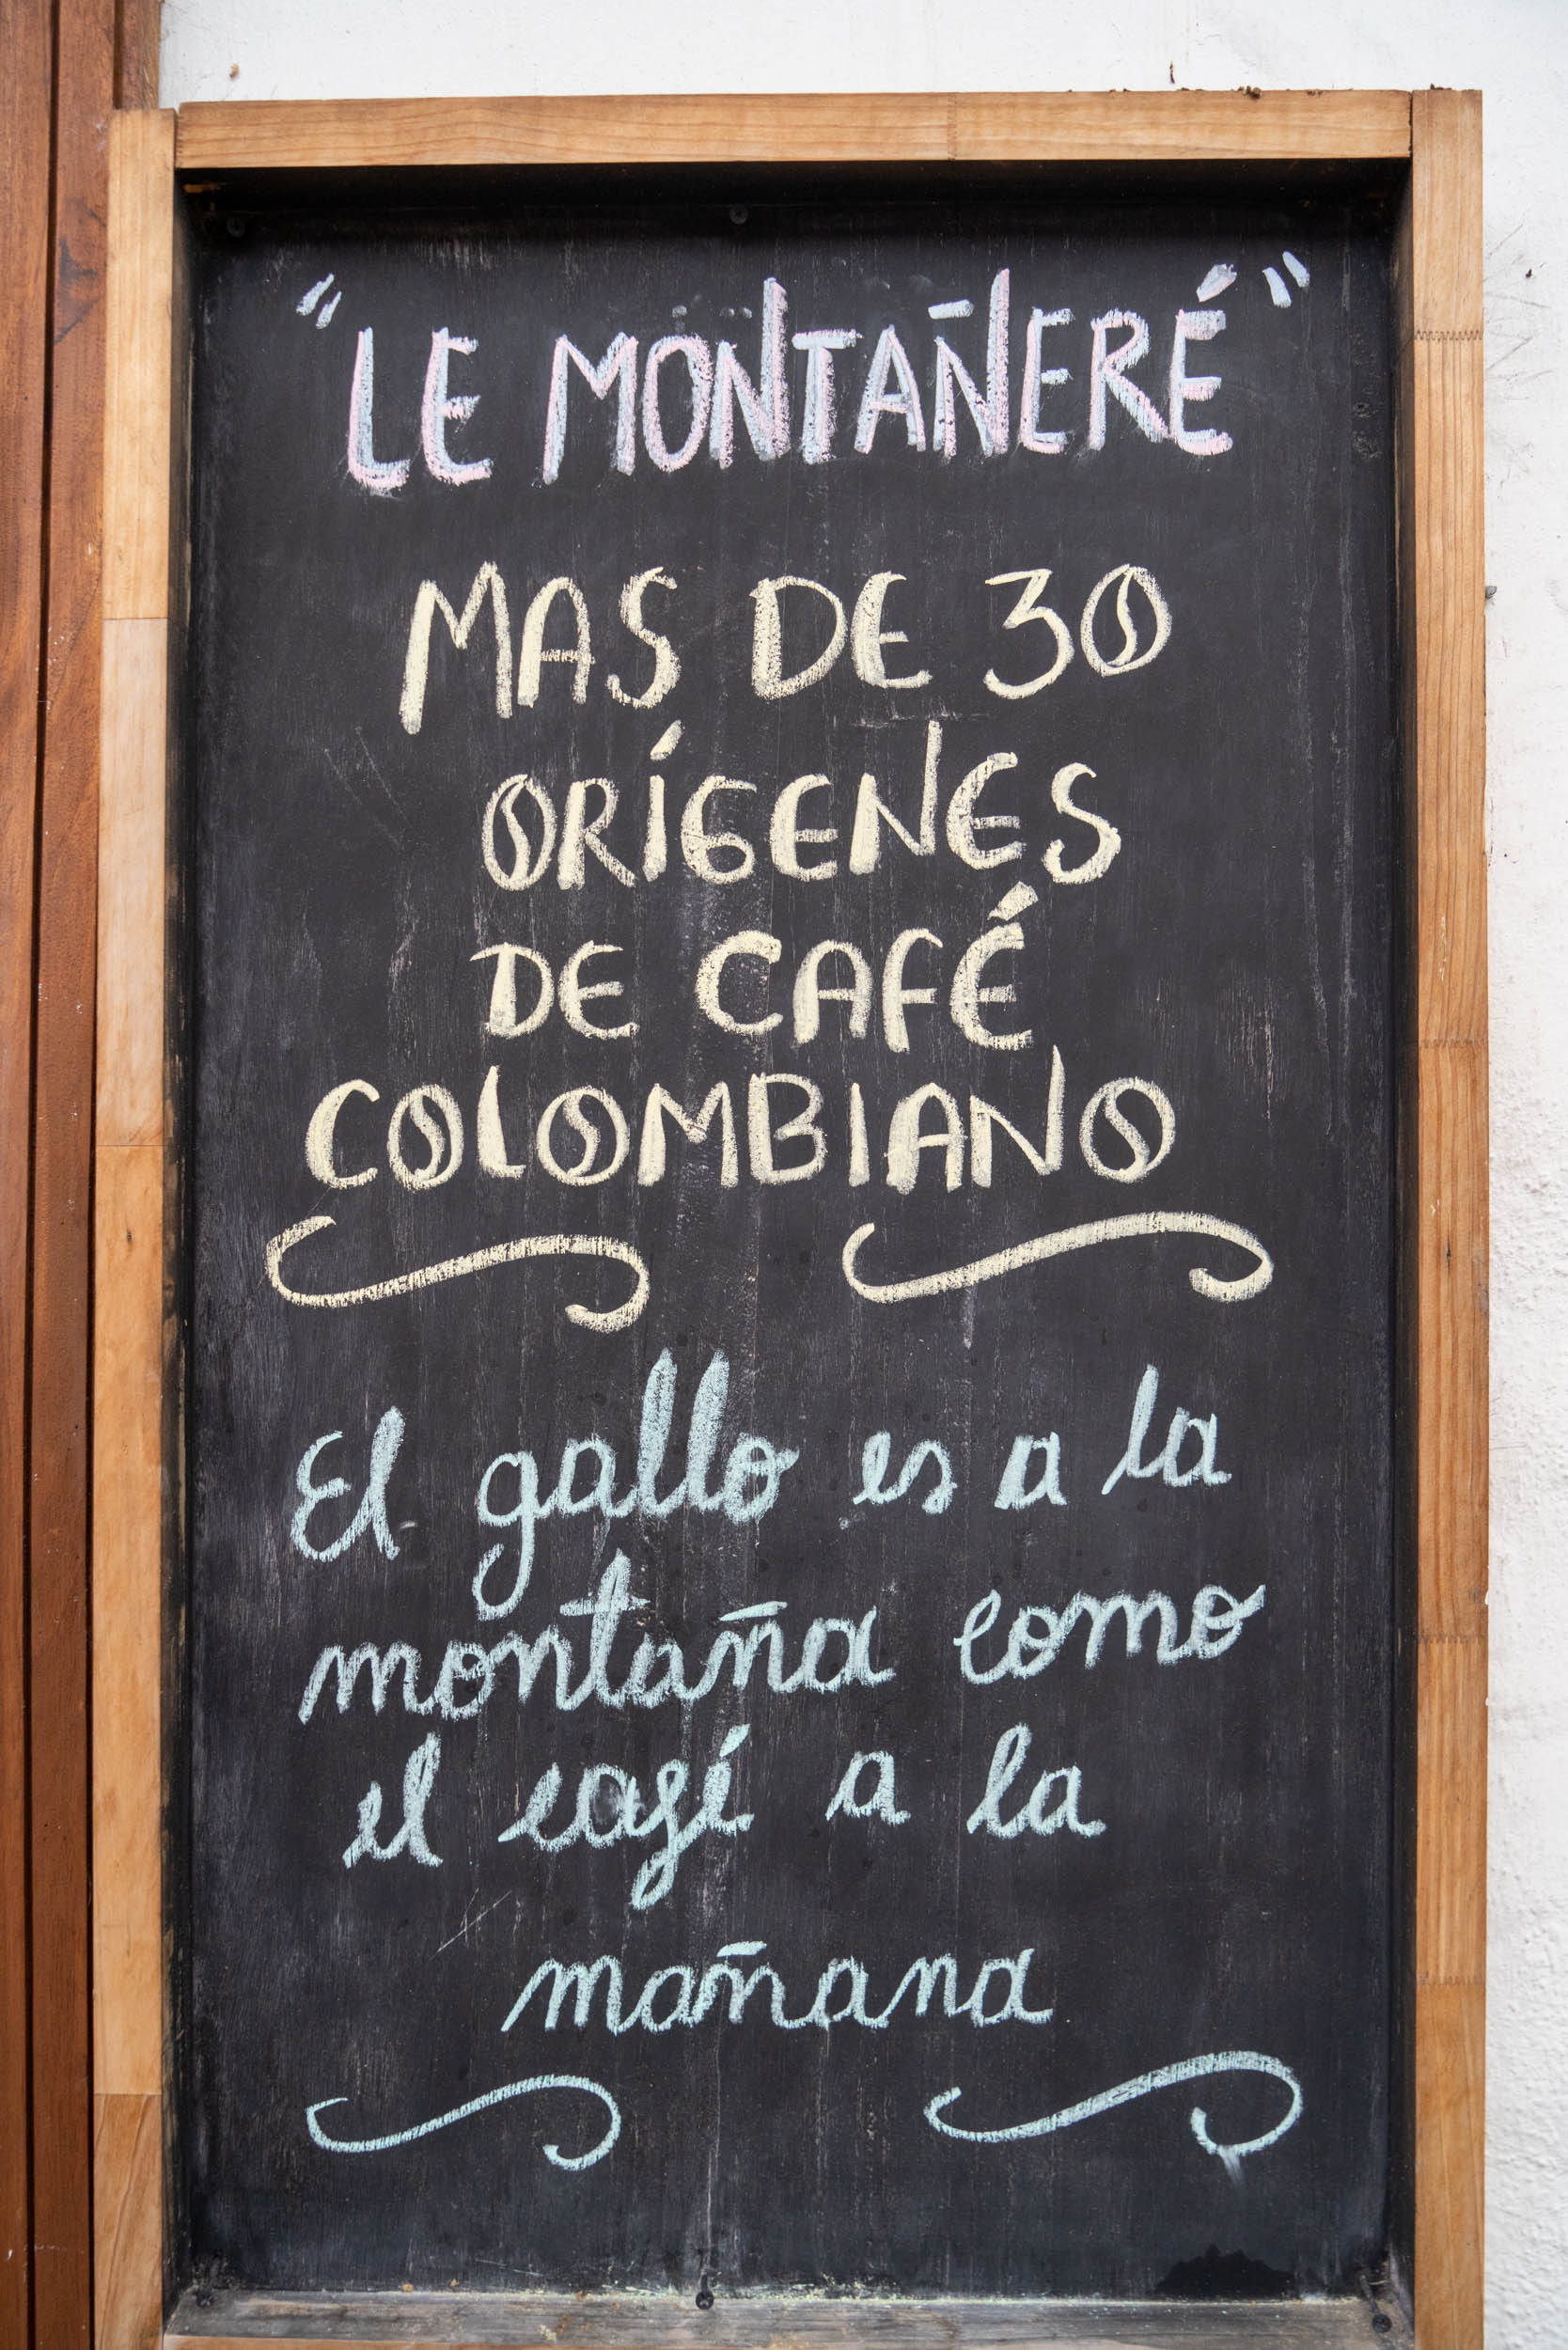 "LE MONTAÑERÉ"
MAS DE 30
ORÍGENES
DE CAFÉ
COLOMBIANO
El gallo es a la
montaña como
el café a la
mañana